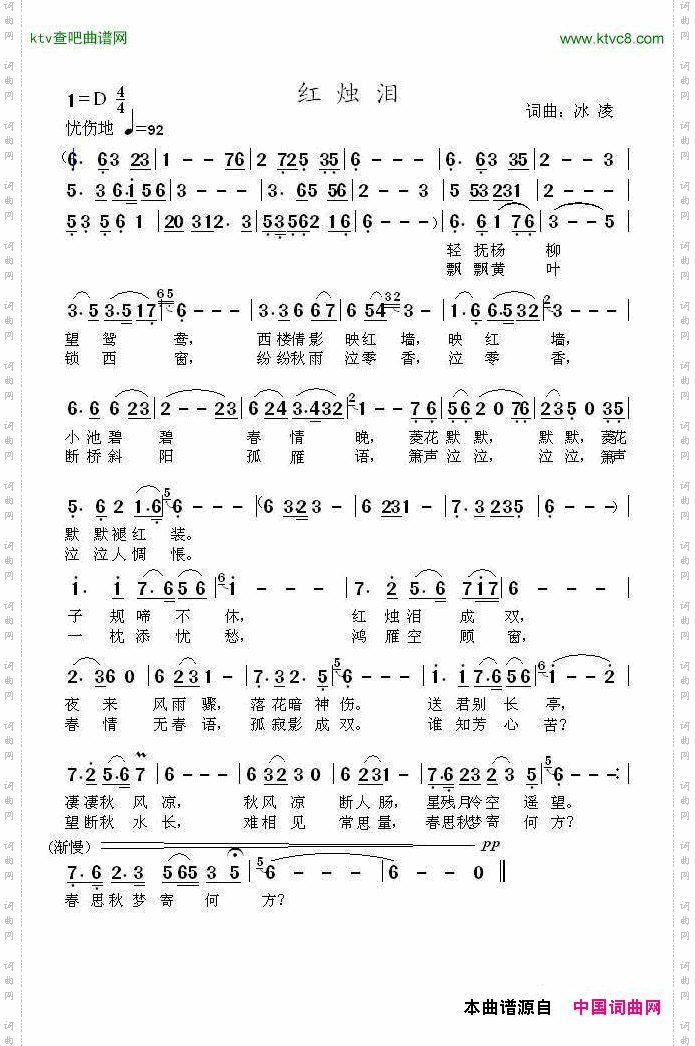 ktv查吧曲谱网
www.ktvc8.com
红烛泪
1=D 4/4
词曲：冰凌
忧伤地 ♩=92
(6· 63 23|1 - - 76|2 725 35|6 - - -|6· 63 5|2 - - -|
5· 36·1 56|3 - - -|3· 65 56|2 - - 3|5 53231|2 - - -|
53 56 1|20 312· 3|53562 16|6 - - -)|6· 61 76|3 - - 5|
轻抚杨柳
飘飘黄叶
3·5 3·517|6 - - -|3·36 67|6 54 3|1·6 6·532|3 - - -|
望鸳鸯，西楼倩影映红墙，映红墙，
锁西窗，纷纷秋雨泣零香，泣零香，
6·6 6 23|2 - - 23|6 23 3·432|1 - - 76|56 2 0 76|235 0 35|
小池碧碧春情晚，菱花默默，默默，菱花
断桥斜阳孤雁语，箫声泣泣，泣泣，箫声
5· 62 1·6|6 - - -|(6 323·|6 231 -|7·3 235|6 - - -)|
默默褪红装。
泣泣人惆怅。
1· 1 7·656|1 - - -|7·2 5·6 717|6 - - -|
子规啼不休，红烛泪成双，
一枕添忧愁，鸿雁空顾窗，
2·36 0|2 - 72 3|7·3 32·5|6 - - -|1·1 3·656|1 - - -|
夜来风雨骤，落花暗神伤。送君别长亭，
春情无春语，孤寂影成双。谁知芳心苦？
7·2 5·6 7|6 - - -|6 32 3 0|2 6 231 -|7·6 23 23· 5|6 - - -:
凄凄秋风凉，秋风凉断人肠，星残月冷空遥望。
望断秋水长，难相见常思量，春思秋梦寄何方？
(渐慢) pp
7·6 2·3 565 3 5|6 - - -|6 - - 0‖
春思秋梦寄何方？
本曲谱源自 中国词曲网